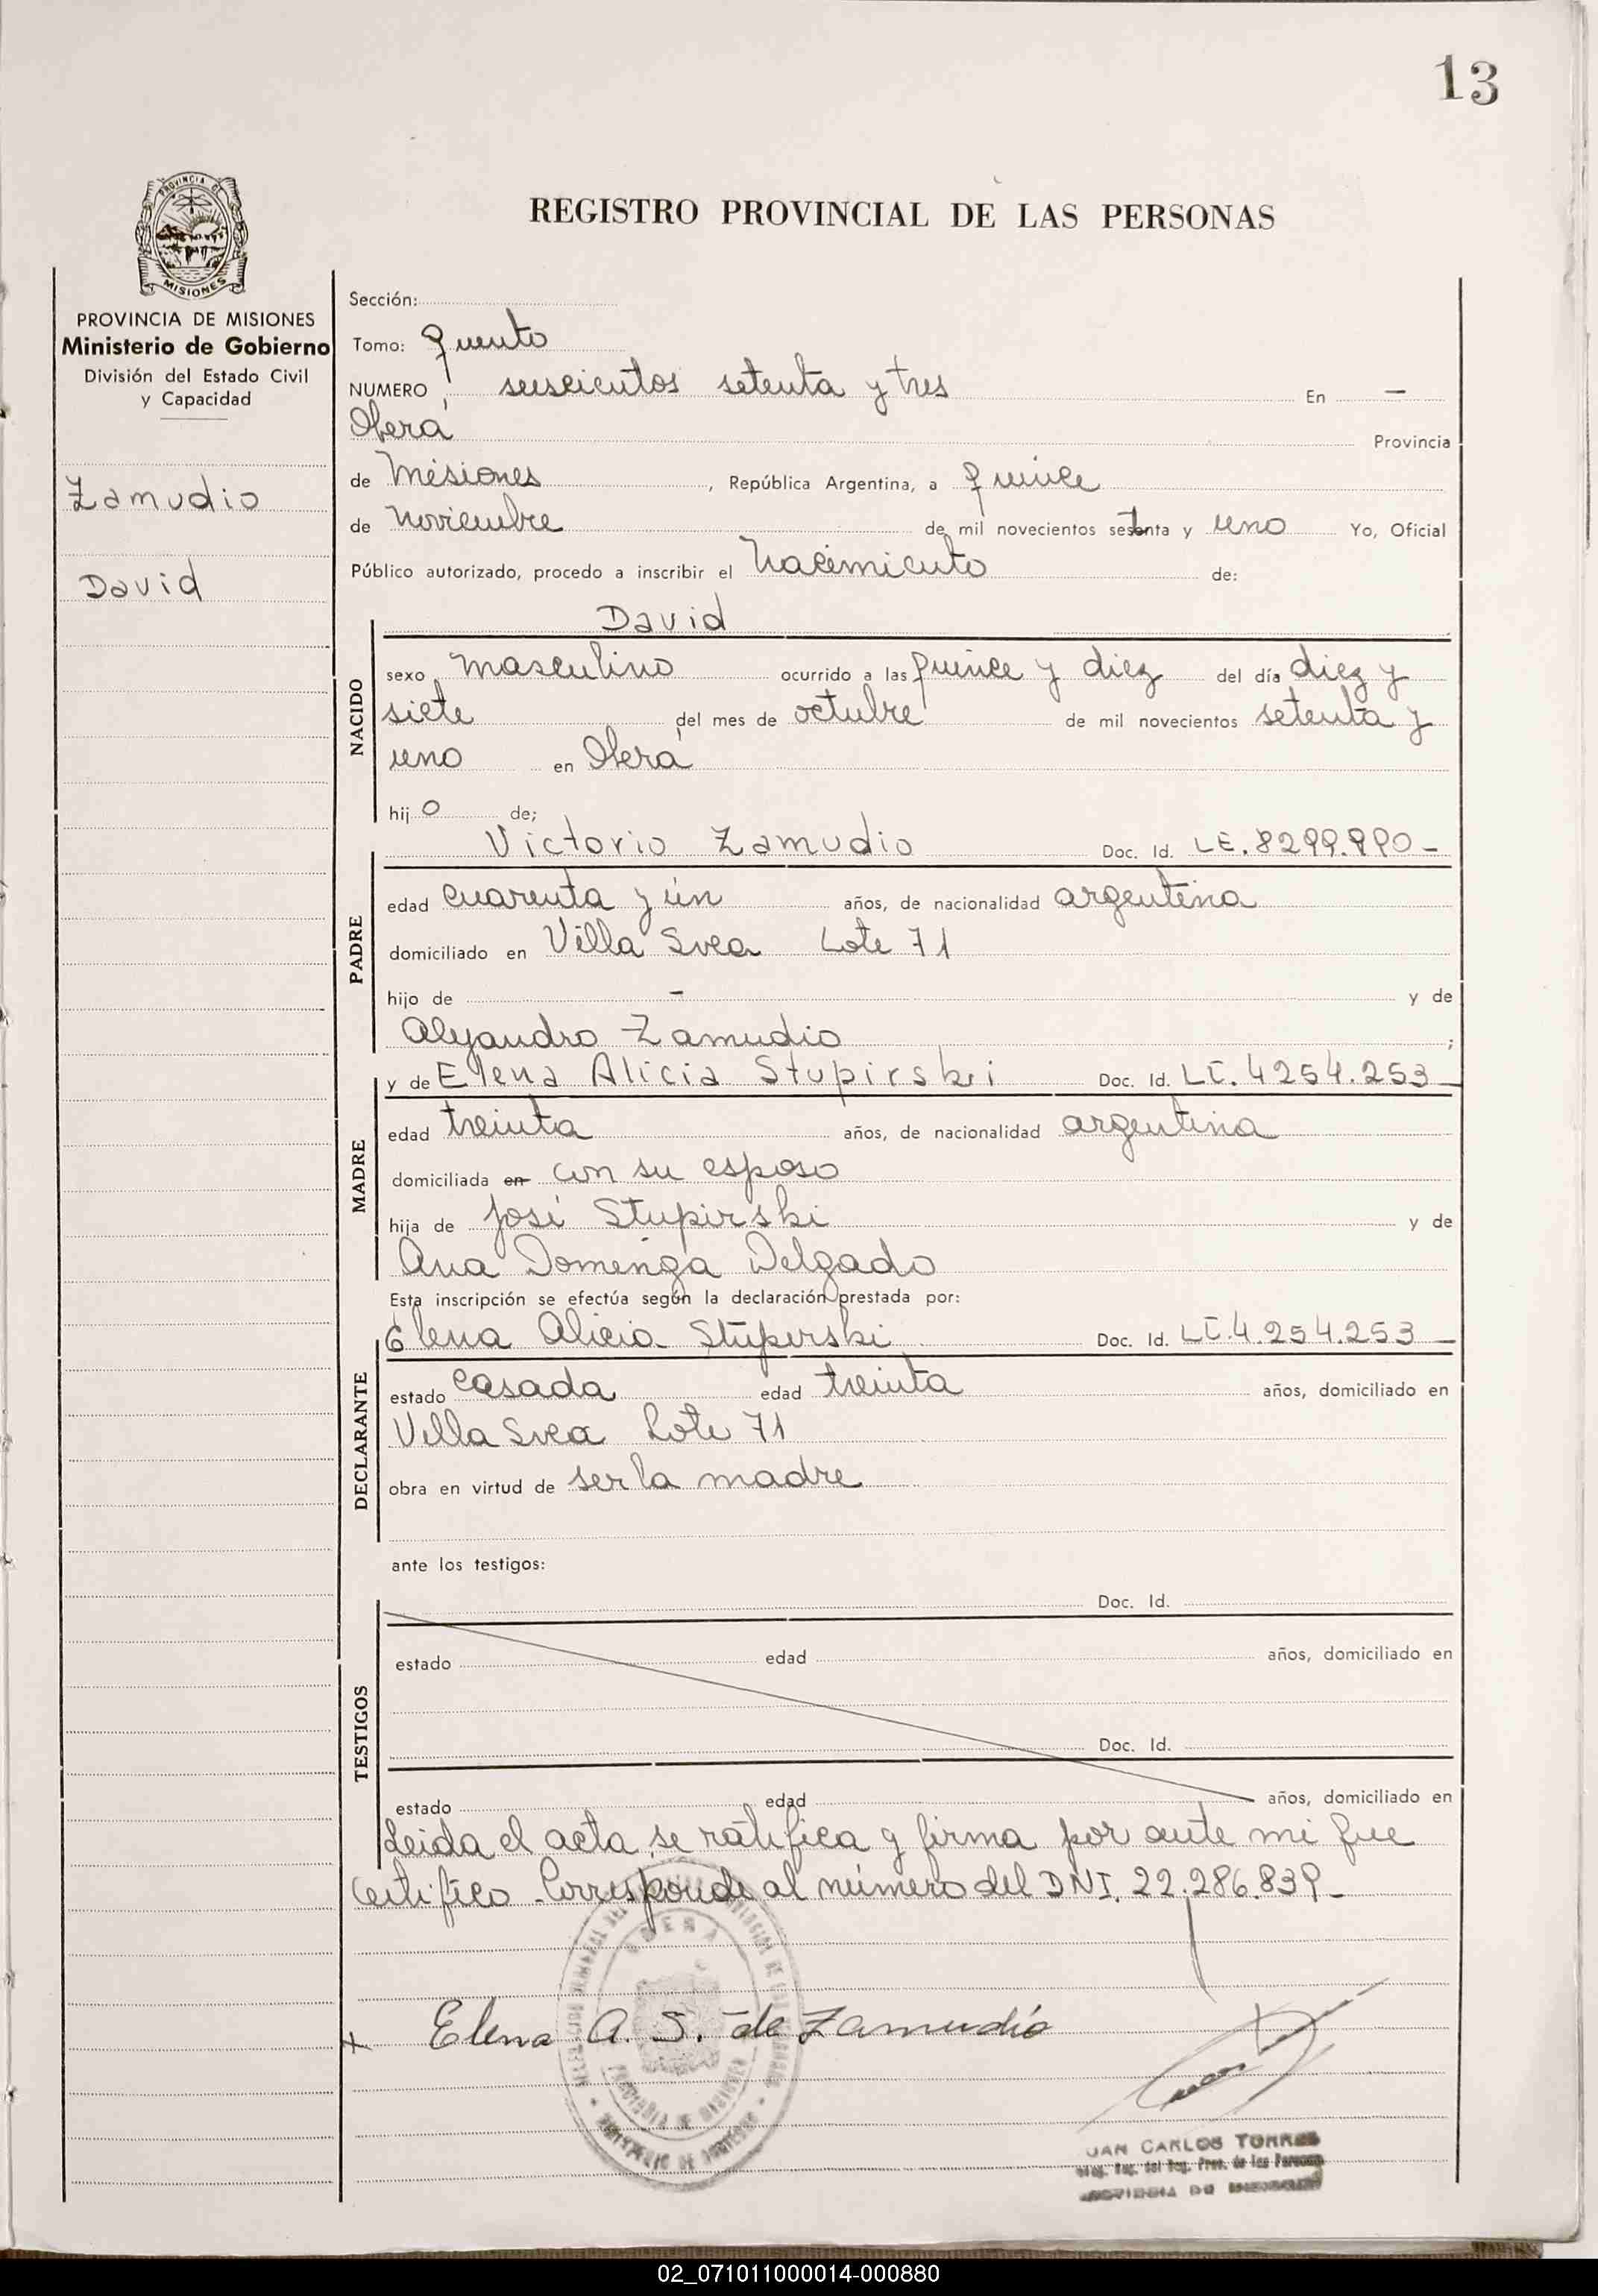 13
PROVINCIA DE
MISIONES
REGISTRO PROVINCIAL DE LAS PERSONAS
PROVINCIA DE MISIONES
Ministerio de Gobierno
División del Estado Civil
y Capacidad
Zamudio
David
Sección:
Tomo: quinto
NUMERO seiscientos setenta y tres En —
Oberá Provincia
de Misiones, República Argentina, a quince
de noviembre de mil novecientos setenta y uno Yo, Oficial
Público autorizado, procedo a inscribir el nacimiento de:
David
NACIDO
sexo masculino ocurrido a las quince y diez del día diez y
siete del mes de octubre de mil novecientos setenta y
uno en Oberá
hijo de;
Victorio Zamudio Doc. Id. LE. 8299.990-
PADRE
edad cuarenta y ún años, de nacionalidad argentina
domiciliado en Villa Svea Lote 71
hijo de - y de
Alejandro Zamudio ;
y de Elena Alicia Stupirski Doc. Id. LC. 4254.253
MADRE
edad treinta años, de nacionalidad argentina
domiciliada en con su esposo
hija de José Stupirski y de
Ana Dominga Delgado
Esta inscripción se efectúa según la declaración prestada por:
Elena Alicia Stupirski Doc. Id. LC. 4.254.253
DECLARANTE
estado casada edad treinta años, domiciliado en
Villa Svea Lote 71
obra en virtud de ser la madre
ante los testigos:
Doc. Id.
TESTIGOS
estado edad años, domiciliado en
Doc. Id.
estado edad años, domiciliado en
Leida el acta, se ratifica y firma por ante mi que
certifico. Corresponde al número del DNI. 22.286.839-
OBERA
PROVINCIA DE MISIONES
MINISTERIO DE GOBIERNO
x Elena A. S. de Zamudio
JUAN CARLOS TORRES
del Reg. Prov. de las Personas
PROVINCIA DE MISIONES
02_071011000014-000880